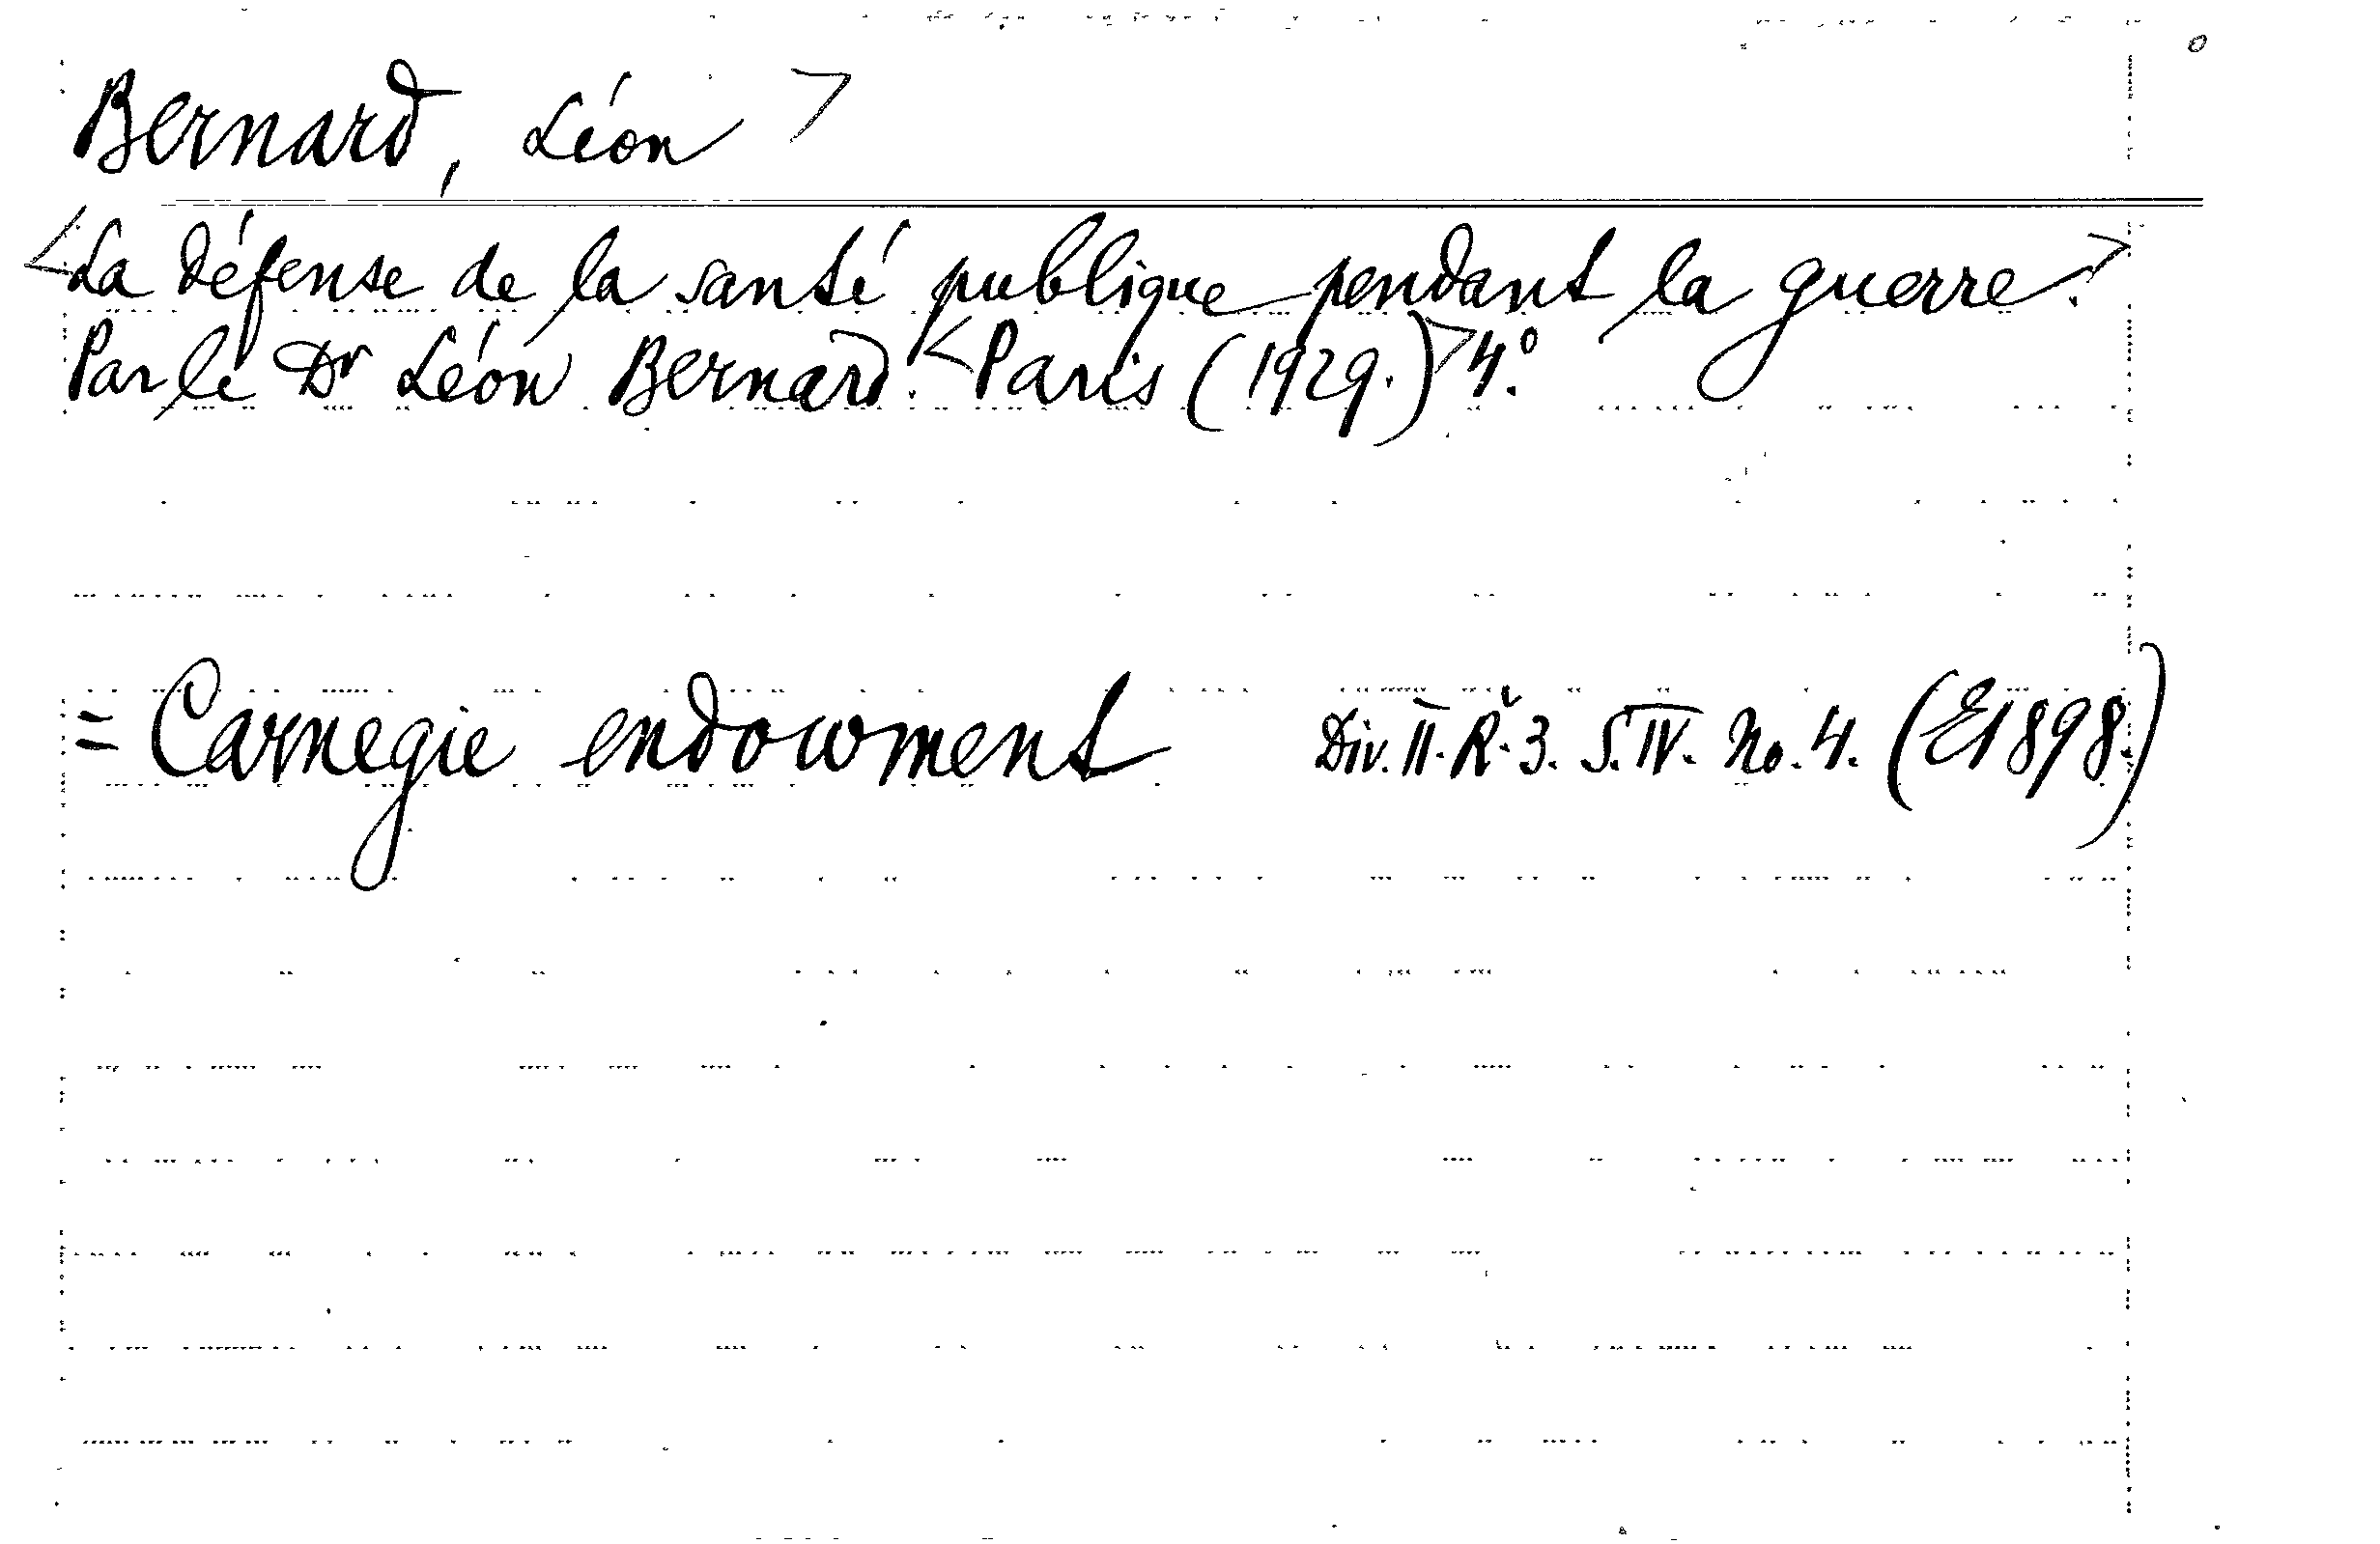 Bernard, Léon >
<La défense de la santé publique pendant la guerre.>
Par le Dr Léon Bernard. <Paris (1929.)> 4.°
= Carnegie endowment Div. II. Ř. 3. S. IV. No. 4. (E1898.)